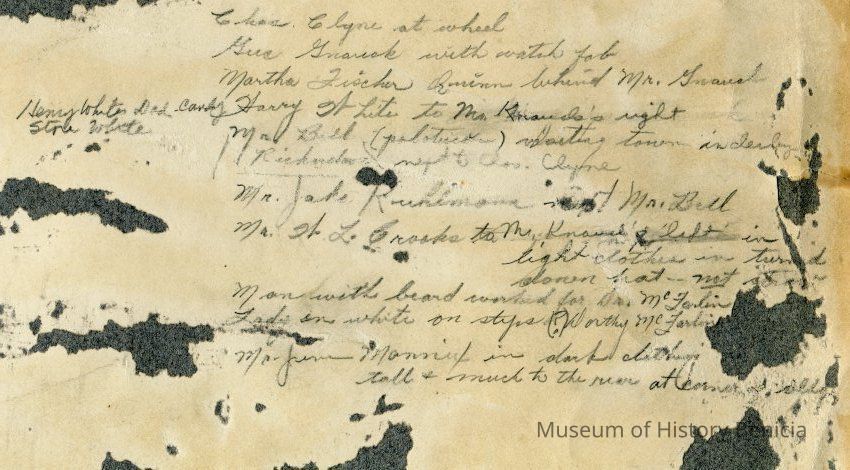 Chas. Clyne at wheel
Gus Gnauck with watch fob
Martha Fischer Quinn behind Mr. Gnauck
Henry White Dad - Candy
Store White
Harry White to Mr. Knauck's right
Mr. Bell (politician) visiting town in derby
Richardson next to Chas. Clyne
Mr. Jake Kuhlmann next Mr. Bell
Mr. W. L. Crooks to Mr. Knauck's left in
light clothes in turned
down hat - not
Man with beard worked for Dr. McFarlin
Lady in white on steps (?) Worthy McFarlin
Mr. in dark clothes
tall & much to the rear at corner
Museum of History Benicia